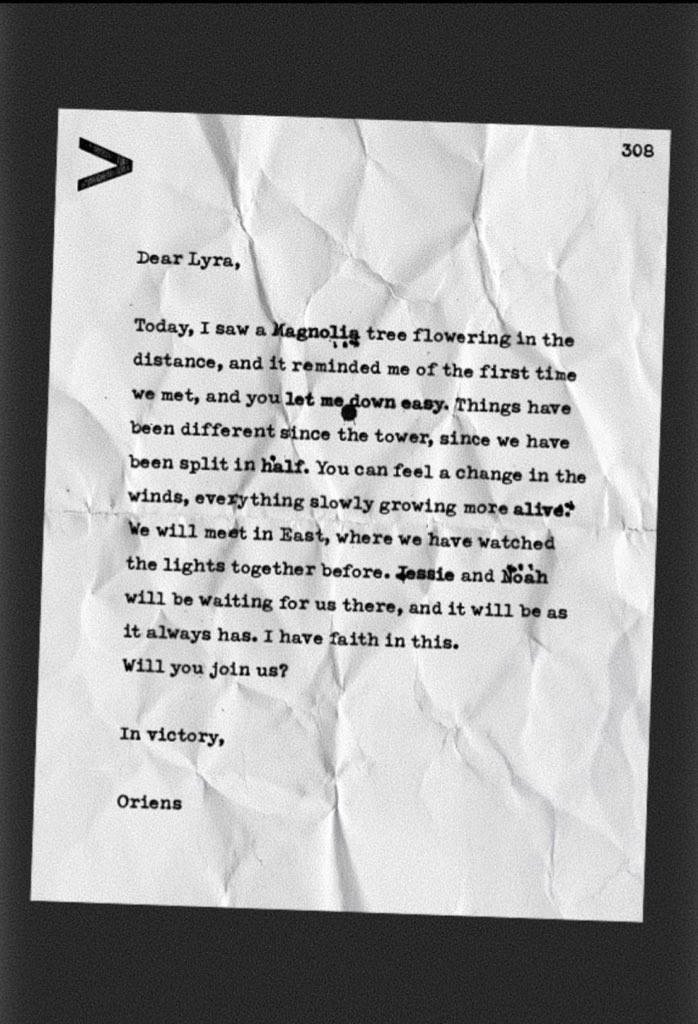 308
Dear Lyra,
Today, I saw a Magnolia tree flowering in the
distance, and it reminded me of the first time
we met, and you let me down easy. Things have
been different since the tower, since we have
been split in half. You can feel a change in the
winds, everything slowly growing more alive.
We will meet in East, where we have watched
the lights together before. Jessie and Noah
will be waiting for us there, and it will be as
it always has. I have faith in this.
Will you join us?
In victory,
Oriens